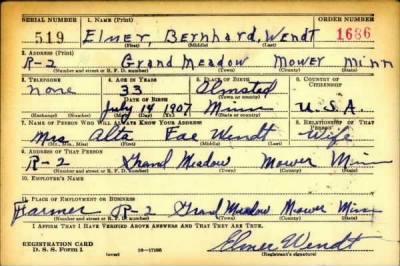 SERIAL NUMBER 1. NAME (Print) ORDER NUMBER
519 Elmer, Bernhard, Wendt 1686
(First) (Middle) (Last)
2. ADDRESS (Print)
R-2 Grand Meadow Mower Minn
(Number and street or R. F. D. number) (Town) (County) (State)
3. TELEPHONE 4. AGE IN YEARS 5. PLACE OF BIRTH 6. COUNTRY OF CITIZENSHIP
none 33 Olmsted
DATE OF BIRTH (Town or county)
July 14 1907 Minn U.S.A.
(Exchange) (Number) (Mo.) (Day) (Yr.) (State or country)
7. NAME OF PERSON WHO WILL ALWAYS KNOW YOUR ADDRESS 8. RELATIONSHIP OF THAT PERSON
Mrs Alta Fae Wendt Wife
(Mr., Mrs., Miss) (First) (Middle) (Last)
9. ADDRESS OF THAT PERSON
R-2 Grand Meadow Mower Minn
(Number and street or R. F. D. number) (Town) (County) (State)
10. EMPLOYER'S NAME
11. PLACE OF EMPLOYMENT OR BUSINESS
Farmer R-2 Grand Meadow Mower Minn
(Number and street or R. F. D. number) (Town) (County) (State)
I AFFIRM THAT I HAVE VERIFIED ABOVE ANSWERS AND THAT THEY ARE TRUE.
REGISTRATION CARD Elmer Wendt
D. S. S. FORM 1 (over) 16-17105 (Registrant's signature)